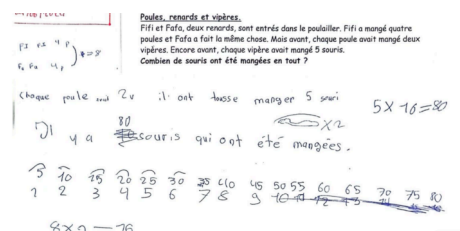 Poules, renards et vipères.
Fifi et Fafa, deux renards, sont entrés dans le poulailler. Fifi a mangé quatre
poules et Fafa a fait la même chose. Mais avant, chaque poule avait mangé deux
vipères. Encore avant, chaque vipère avait mangé 5 souris.
Combien de souris ont été mangées en tout ?
4 p
= 8
4 p
chaque poule 2v il ont tousse manger 5 souri
5 X 16 = 80
X2
80
Il y a souris qui ont été mangées.
5 10 15 20 25 30 35 40 45 50 55 60 65 70 75 80
1 2 3 4 5 6 7 8 9 10
8 x 2 = 16